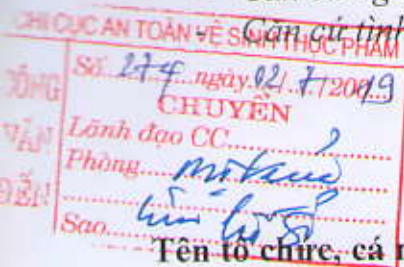 Căn cứ tình
CHI CỤC AN TOÀN VỆ SINH THỰC PHẨM
CÔNG VĂN ĐẾN
Số 274 ngày 02/7/2019
CHUYỂN
Lãnh đạo CC
Phòng
Sao lưu hồ sơ
Tên tổ chức, cá